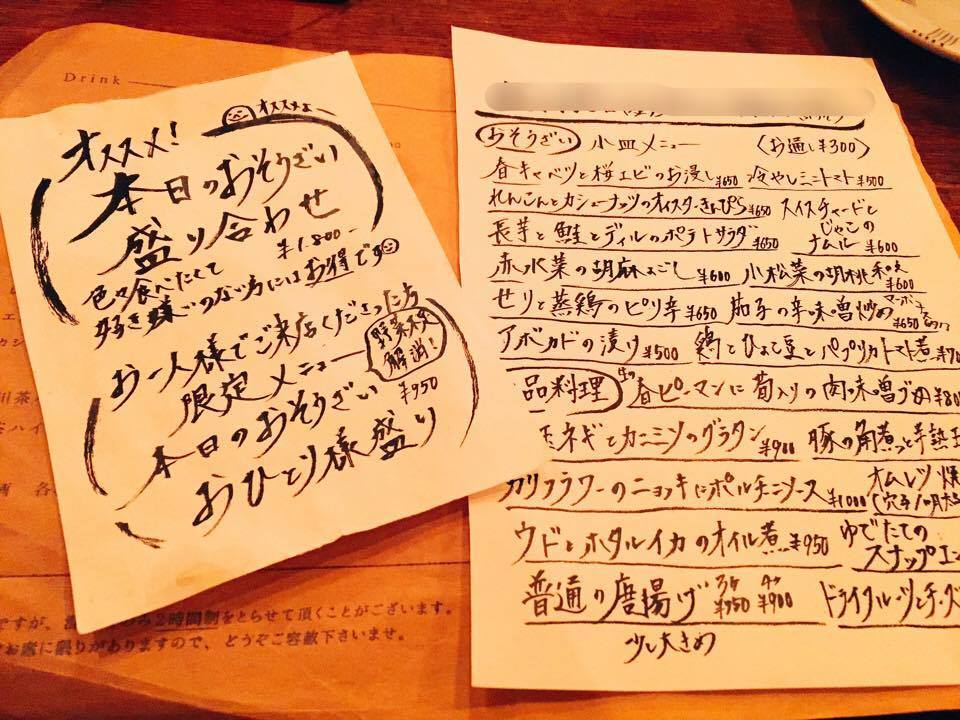 Drink
オススメ!
オススメよ
本日のおそうざい
盛り合わせ
¥1.800-
色々食べたくて
好き嫌いのない方にはお得です
お一人様でご来店くださった方
限定メニュー
野菜不足
解消!
本日のおそうざい ¥950
おひとり様盛り
ですが、 2時間制をとらせて頂くことがございます。
お席に限りがありますので、どうぞご容赦下さいませ。
おそうざい 小皿メニュー (お通し¥300)
春キャベツと桜エビのお浸し¥650 冷やしミニトマト¥500
れんこんとカシューナッツのオイスターきんぴら¥650 スイスチャードと
じゃこの
ナムル ¥600
長芋と鮭とディルのポテトサラダ ¥650
赤水菜の胡麻よごし ¥600 小松菜の胡桃和え ¥600
セリと蒸鶏のピリ辛 ¥650 茄子の辛味噌炒め ¥650
アボカドの漬け ¥500 鶏とひよこ豆とパプリカトマト煮
品料理 春ピーマンに筍入りの肉味噌づめ
玉ネギとカニミソのグラタン ¥900 豚の角煮っと半熟玉
カリフラワーのニョッキにポルチーニソース ¥1000 オムレツ
ウドとホタルイカのオイル煮 ¥950 ゆでたての
スナップエン
普通の唐揚げ 3ケ ¥750 4ケ ¥900
少し大きめ
ドライフルーツとチーズ